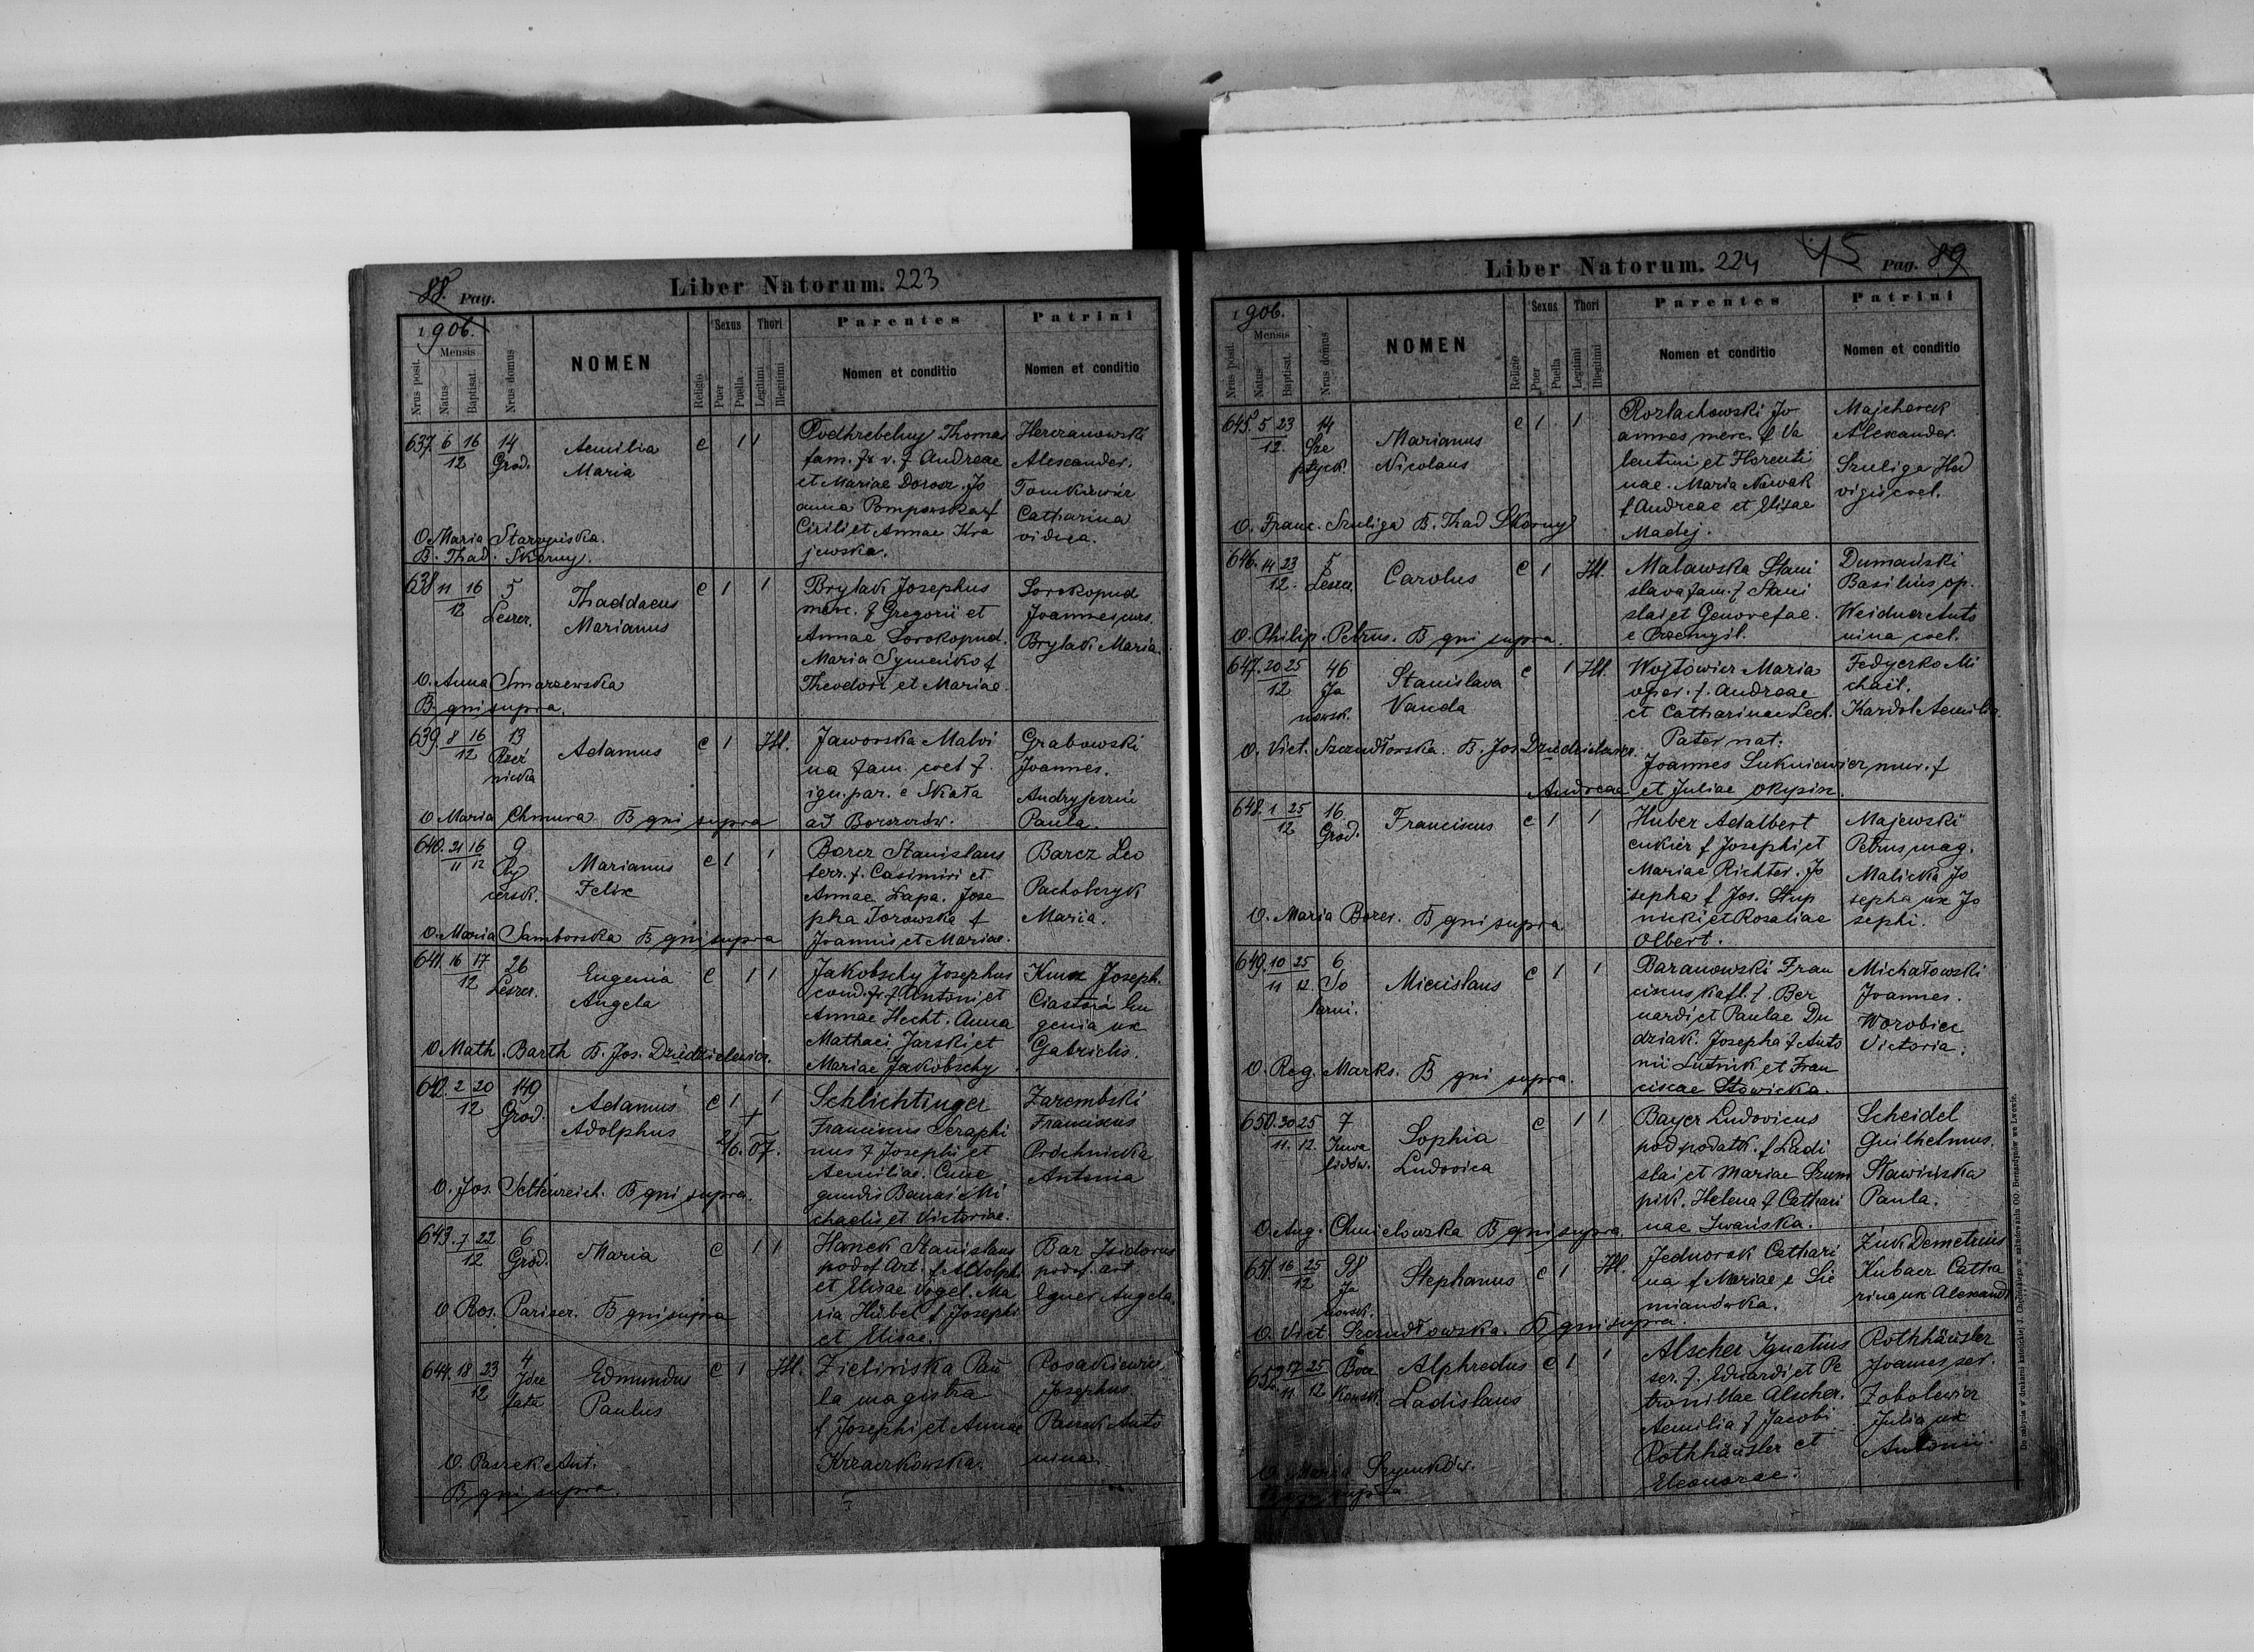 88. Pag.
Liber Natorum. 223
1906.
Nrus posit.
Mensis
Natus
Baptisat.
Nrus domus
NOMEN
Religio
Sexus
Puer
Puella
Thori
Legitimi
Illegitimi
Parentes
Nomen et conditio
Patrini
Nomen et conditio
637. 6 16
12
14
Grod.
Aemilia
Maria
c 1 1
Podhrebelny Thomas
fam. f. Andreae
et Mariae Dorosz. Jo
anna Pompowska f
Cirili et Annae Kra
jewska.
Herczanowski
Alexander.
Tomkiewicz
Catharina
vidua.
O. Maria Starzyńska.
B. Thad. Skorny.
638 11 16
12
5
Leszcz.
Thaddaeus
Marianus
c 1 1
Brylak Josephus
merc. f Gregorii et
Annae Sorokopud.
Maria Symeńko f
Theodori et Mariae.
Sorokopud
Joannes
Brylak Maria.
O. Anna Smarzewska
B. qui supra.
639. 8 16
12
13
Rzeź
nicka
Adamus
c 1 Ill.
Jaworska Malvi
na fam. coel f.
ign. par. e Skała
ad Borszczów.
Grabowski
Joannes.
Paula.
O Maria Chmura B qui supra
640. 21 16
11 12
9
Ry
cersk.
Marianus
Felix
c 1 1
Borcz Stanislaus
ferr. f. Casimiri et
Annae Łapa. Jose
pha Torowska f
Joannis et Mariae.
Barcz Leo
Pacholczyk
Maria.
O. Maria Samborska B qui supra
641. 16 17
12
26
Leszcz.
Eugenia
Angela
c 1 1
Jakobschy Josephus
cond. f Antoni et
Annae Hecht. Anna
Mathaei Jarski et
Mariae Jakobschy
Joseph.
Eu
genia ux
Gabrielis.
O Math. Barth B. Jos. Dziedzielewicz.
642. 2 20
12
149
Grod.
Adamus
Adolphus
c 1 1
+
Schlichtinger
Franciscus Seraphi
nus f Josephi et
Aemiliae. Cune
gundis Banaś Mi
chaelis et Victoriae.
Zarembski
Franciscus
Próchnicka
Antonia
O. Jos. Settenreich. B qui supra.
643. 7 22
12
6
Grod.
Maria
c 1 1
Hanek Stanislaus
podof. Art. f Adolphi
et Elisae Vogel. Ma
ria Hübel f Josephi
et Elisae.
Bar Isidorus
podof. art
Egner Angela.
O Ros. Pariser. B qui supra
644. 18 23
12
4
Józe
fata
Edmundus
Paulus
c 1 Ill.
Zielińska Pau
la magistra
f Josephi et Annae
Krzaczkowska.
Rosakiewicz
Josephus
Paszek Anto
nina.
O. Paszek Ant.
B qui supra.
Liber Natorum. 224
45
Pag. 89
1906.
Nrus posit.
Mensis
Natus
Baptisat.
Nrus domus
NOMEN
Religio
Sexus
Puer
Puella
Thori
Legitimi
Illegitimi
Parentes
Nomen et conditio
Patrini
Nomen et conditio
645. 5 23
12.
14
Sze
ptyck.
Marianus
Nicolaus
c 1 1
Rozlachowski Jo
annes merc. f Va
lentini et Florenti
nae. Maria Nowak
f Andreae et Elisae
Madej.
Majcherek
Alexander.
Szuliga Hed
vigis coel.
O. Franc. Szuliga B. Thad Skorny
646. 14 23
12.
5
Leszcz.
Carolus
c 1 Ill.
Malawska Stani
slava fam. f Stani
slai et Genovefae.
e Przemyśl.
Dumański
Basilius op.
Weidner Anto
nina coel.
O. Philip. Petrus. B qui supra.
647. 20 25
12
46
Ja
nowsk.
Stanislava
Vanda
c 1 Ill.
Wojtowicz Maria
oper. f. Andreae
et Catharinae Lech.
Pater nat:
Joannes Lukniewicz mur. f
Andreae et Juliae Okypin.
Fedyczko Mi
chaël.
Kardol Aemilia.
O. Vict. Szczudłowska. B. Jos Dziedzielewicz.
648. 1 25
12
16
Grod.
Franciscus
c 1 1
Huber Adalbert
cukier f Josephi et
Mariae Richter. Jo
sepha f Jos. Stup
nicki et Rosaliae
Olbert.
Majewski
Petrus mag.
Malicka Jo
sepha ux Jo
sephi.
O. Maria Borcz. B qui supra
649. 10 25
11 12
6
So
larni.
Miecislaus
c 1 1
Baranowski Fran
ciscus kafl. f. Ber
nardi et Paulae Du
dziak. Josepha f Anto
nii Lutnik et Fran
ciscae Słowicka.
Michałowski
Joannes.
Worobiec
Victoria.
O. Reg. Marks. B qui supra.
650. 30 25
11. 12.
7
Inwa
lidów.
Sophia
Ludovica
c 1 1
Bayer Ludovicus
pod podatk. f Ladi
slai et Mariae Szum
pik. Helena f Cathari
nae Iwańska.
Scheidel
Guilhelmus.
Sławińska
Paula.
O. Aug. Chmielowska B qui supra
651. 16 25
12
98
Ja
nowsk.
Stephanus
c 1 Ill.
Jednorak Cathari
na f Mariae e Sie
mianówka.
Żuk Demetrius
Kubacz Catha
rina ux Alexandri
O. Vict. Szczudłowska. B qui supra.
652 17 25
11 12
6
Bocz
kowsk.
Alphredus
Ladislaus
c 1 1
Alscher Ignatius
ser. f. Eduardi et Pe
tronillae Alscher.
Aemilia f Jacobi
Rothhäusler et
Eleonorae.
Rothhäusler
Joannes ser.
Zobolewicz
Julia ux
Antonii.
O. Maria Szymków.
B qui supra
Do nabycia w drukarni katolickiej J. Chęcińskiego, w zabudowaniu OO. Bernardynów we Lwowie.